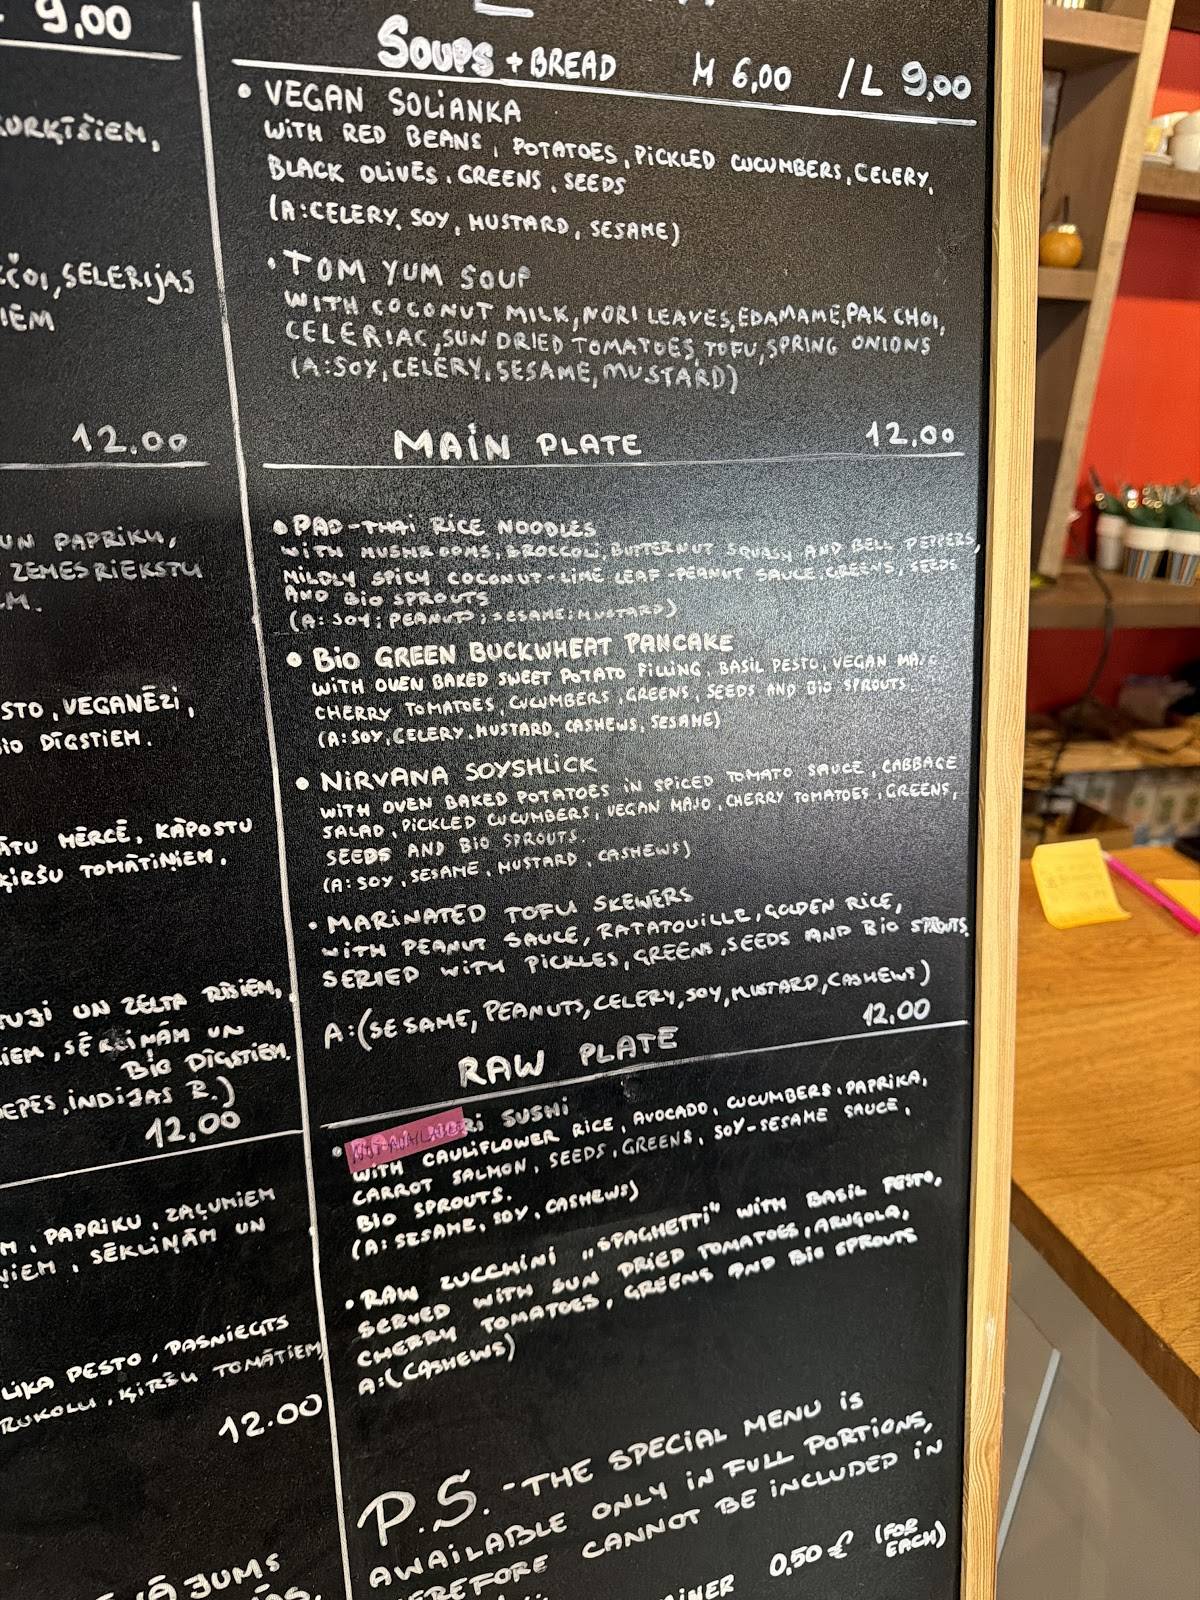 9,00
KURĶĪŠIEM,
SELERIJAS
IEM
12.00
UN PAPRIKU,
ZEMESRIEKSTU
M.
STO, VEGANĒZI,
IO DĪGSTIEM.
ĀTU MĒRCĒ, KĀPOSTU
ĶIRŠU TOMĀTIŅIEM.
UJI UN ZELTA RĪSIEM,
IEM, SĒKLIŅĀM UN
BIO DĪGSTIEM.
EPES, INDIJAS R.)
12,00
M, PAPRIKU, ZAĻUMIEM
ŅIEM, SĒKLIŅĀM UN
LIKA PESTO, PASNIEGTS
RUKOLU, ĶIRŠU TOMĀTIEM
12.00
JUMS
SOUPS + BREAD M 6,00 /L 9,00
• VEGAN SOLIANKA
WITH RED BEANS, POTATOES, PICKLED CUCUMBERS, CELERY,
BLACK OLIVES, GREENS, SEEDS
(A: CELERY, SOY, MUSTARD, SESAME)
• TOM YUM SOUP
WITH COCONUT MILK, NORI LEAVES, EDAMAME, PAK CHOI,
CELERIAC, SUN DRIED TOMATOES, TOFU, SPRING ONIONS
(A: SOY, CELERY, SESAME, MUSTARD)
MAIN PLATE 12.00
• PAD-THAI RICE NOODLES
WITH MUSHROOMS, BROCCOLI, BUTTERNUT SQUASH AND BELL PEPPERS,
MILDLY SPICY COCONUT-LIME LEAF-PEANUT SAUCE, GREENS, SEEDS
AND BIO SPROUTS
(A: SOY; PEANUT; SESAME; MUSTARD)
• BIO GREEN BUCKWHEAT PANCAKE
WITH OVEN BAKED SWEET POTATO FILLING, BASIL PESTO, VEGAN MAJO
CHERRY TOMATOES, CUCUMBERS, GREENS, SEEDS AND BIO SPROUTS.
(A: SOY, CELERY, MUSTARD, CASHEWS, SESAME)
• NIRVANA SOYSHLICK
WITH OVEN BAKED POTATOES IN SPICED TOMATO SAUCE, CABBAGE
SALAD, PICKLED CUCUMBERS, VEGAN MAJO, CHERRY TOMATOES, GREENS,
SEEDS AND BIO SPROUTS.
(A: SOY, SESAME, MUSTARD, CASHEWS)
• MARINATED TOFU SKEWERS
WITH PEANUT SAUCE, RATATOUILLE, GOLDEN RICE,
SERIED WITH PICKLES, GREENS, SEEDS AND BIO SPROUTS.
A: (SESAME, PEANUTS, CELERY, SOY, MUSTARD, CASHEWS)
RAW PLATE 12,00
• NOT AVAILABLE RI SUSHI
WITH CAULIFLOWER RICE, AVOCADO, CUCUMBERS, PAPRIKA,
CARROT SALMON, SEEDS, GREENS, SOY-SESAME SAUCE,
BIO SPROUTS.
(A: SESAME, SOY, CASHEWS)
• RAW ZUCCHINI „SPAGHETTI" WITH BASIL PESTO,
SERVED WITH SUN DRIED TOMATOES, ARUGOLA,
CHERRY TOMATOES, GREENS AND BIO SPROUTS
A: (CASHEWS)
P.S. - THE SPECIAL MENU IS
AWAILABLE ONLY IN FULL PORTIONS,
HEREFORE CANNOT BE INCLUDED IN
AINER 0,50 € (FOR EACH)